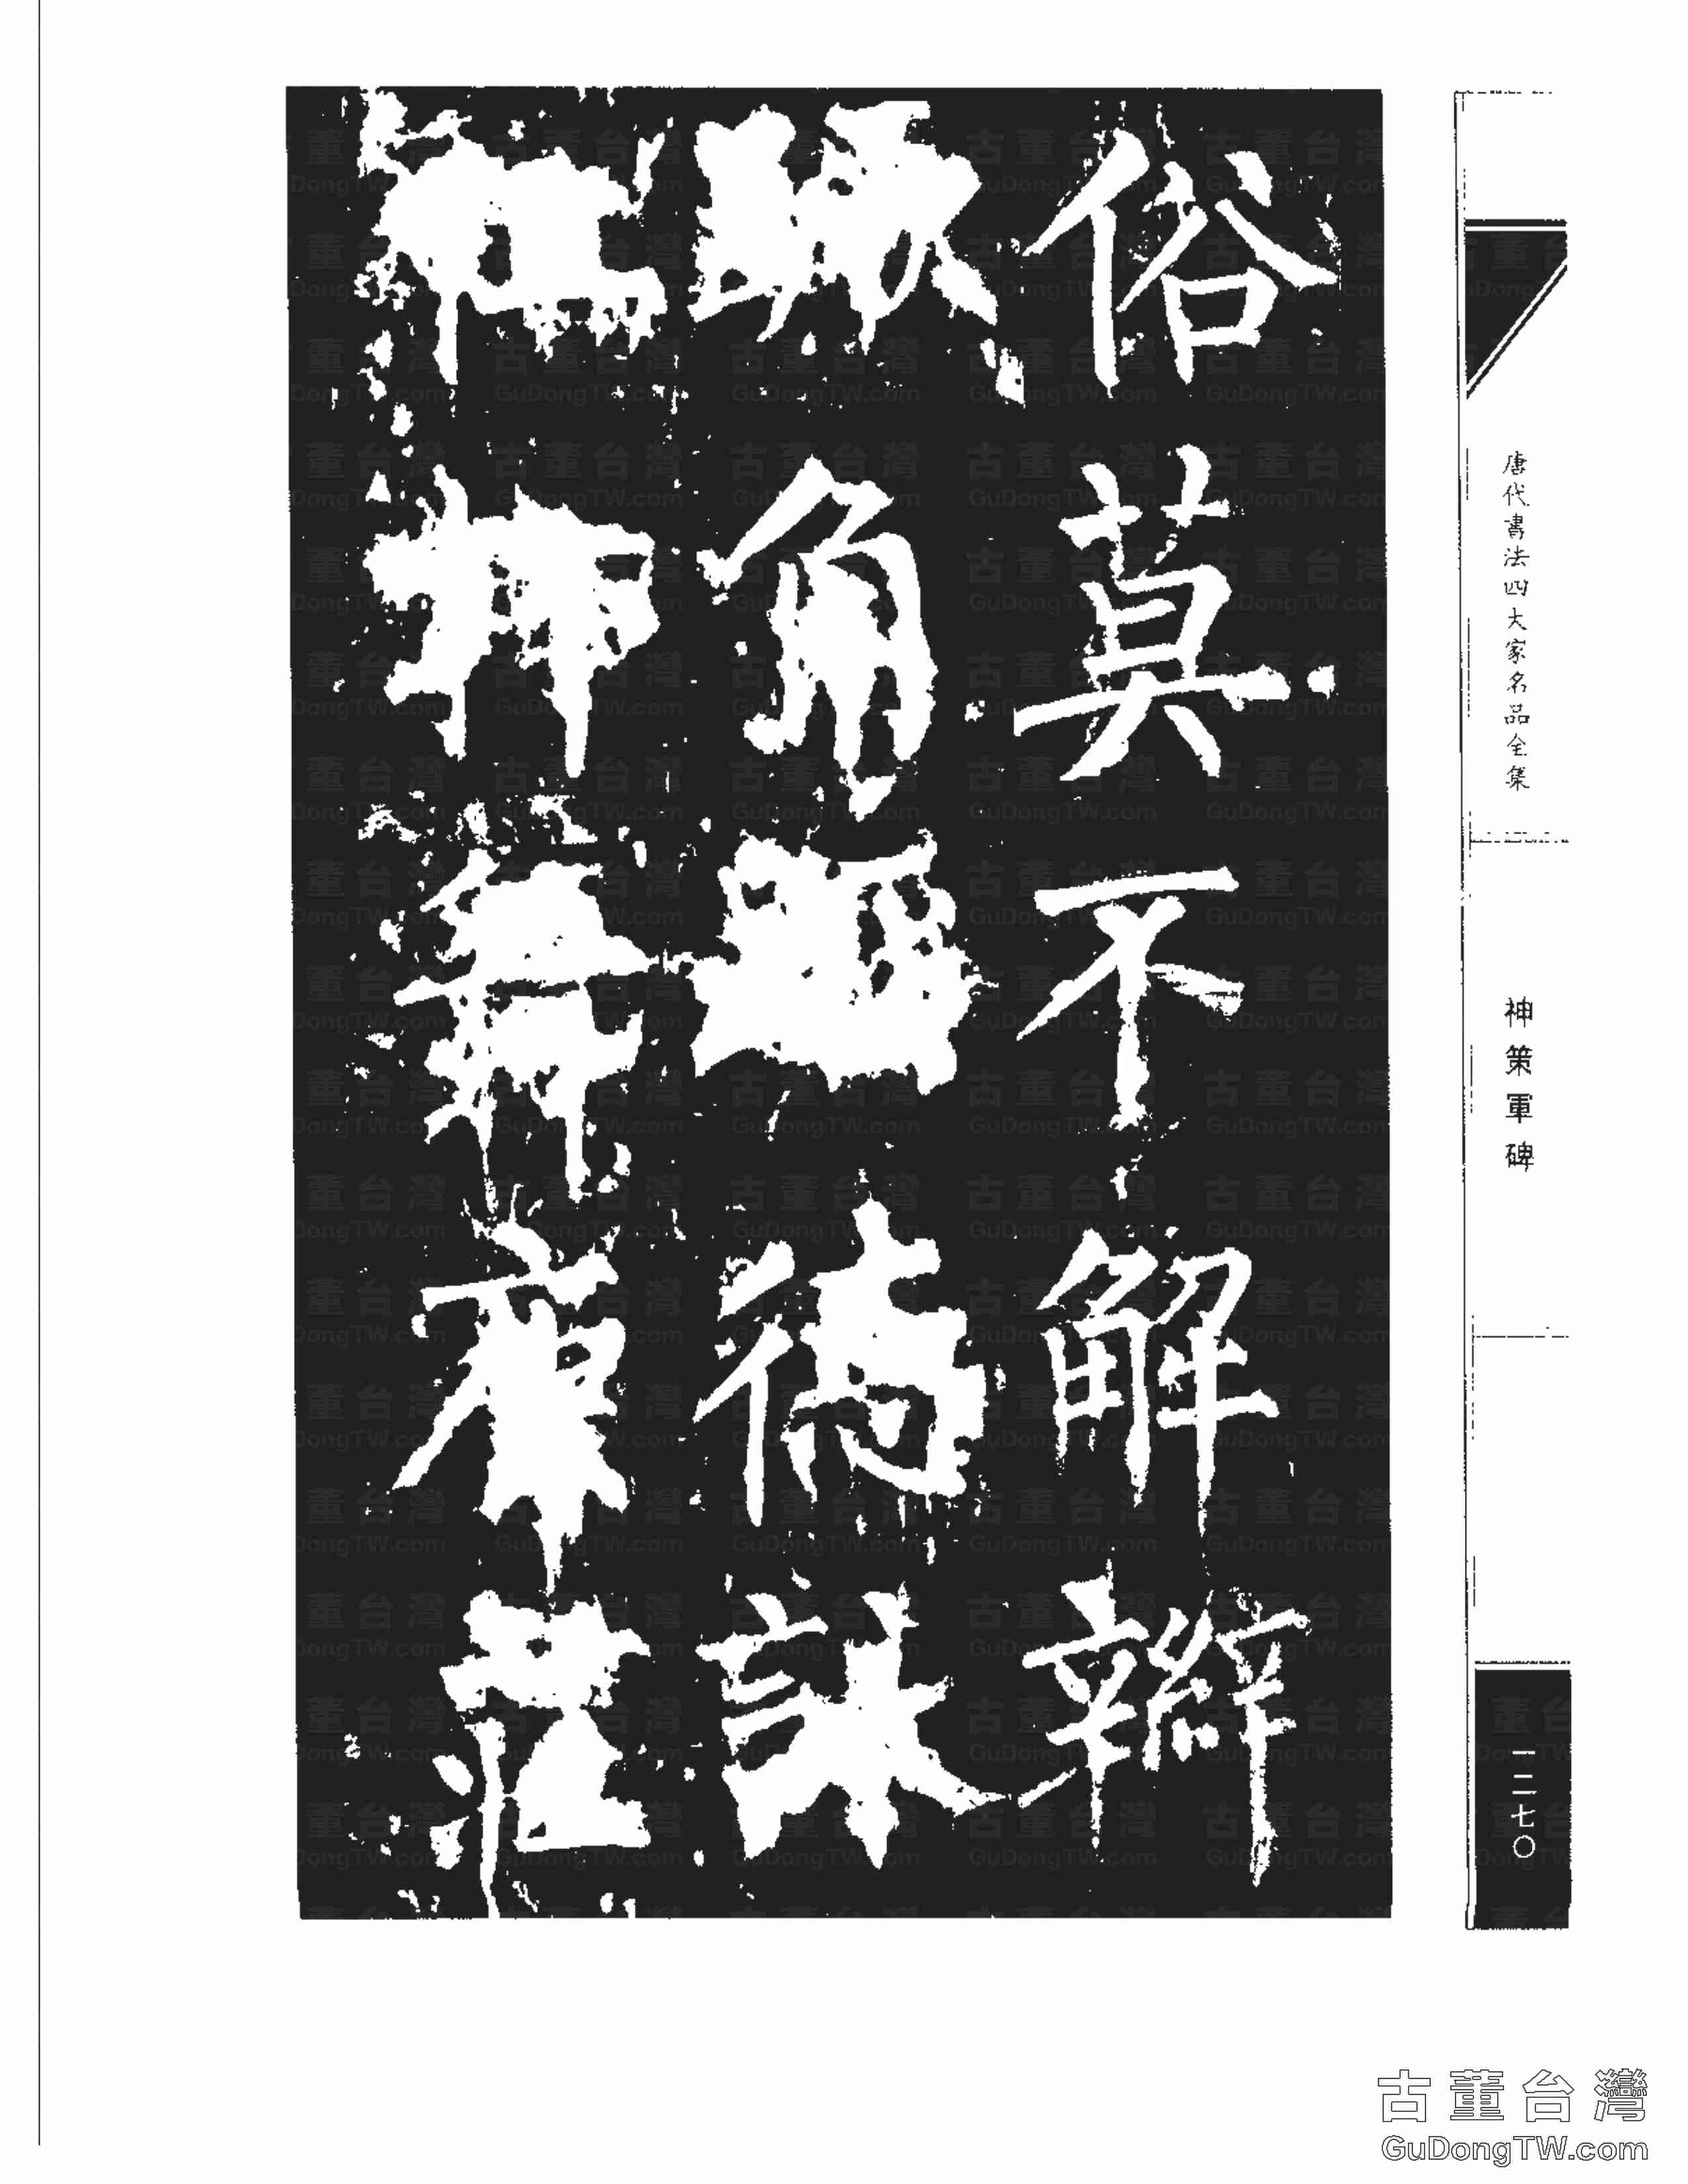 俗莫不解辮
蹶角蹈德詠
仁抃舞康莊
唐代書法四大家名品全集
神策軍碑
一二七〇
古董台灣
GuDongTW.com